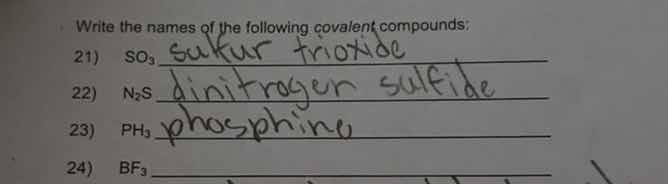 Write the names of the following covalent compounds:
21) SO₃ sulfur trioxide
22) N₂S dinitrogen sulfide
23) PH₃ phosphine
24) BF₃